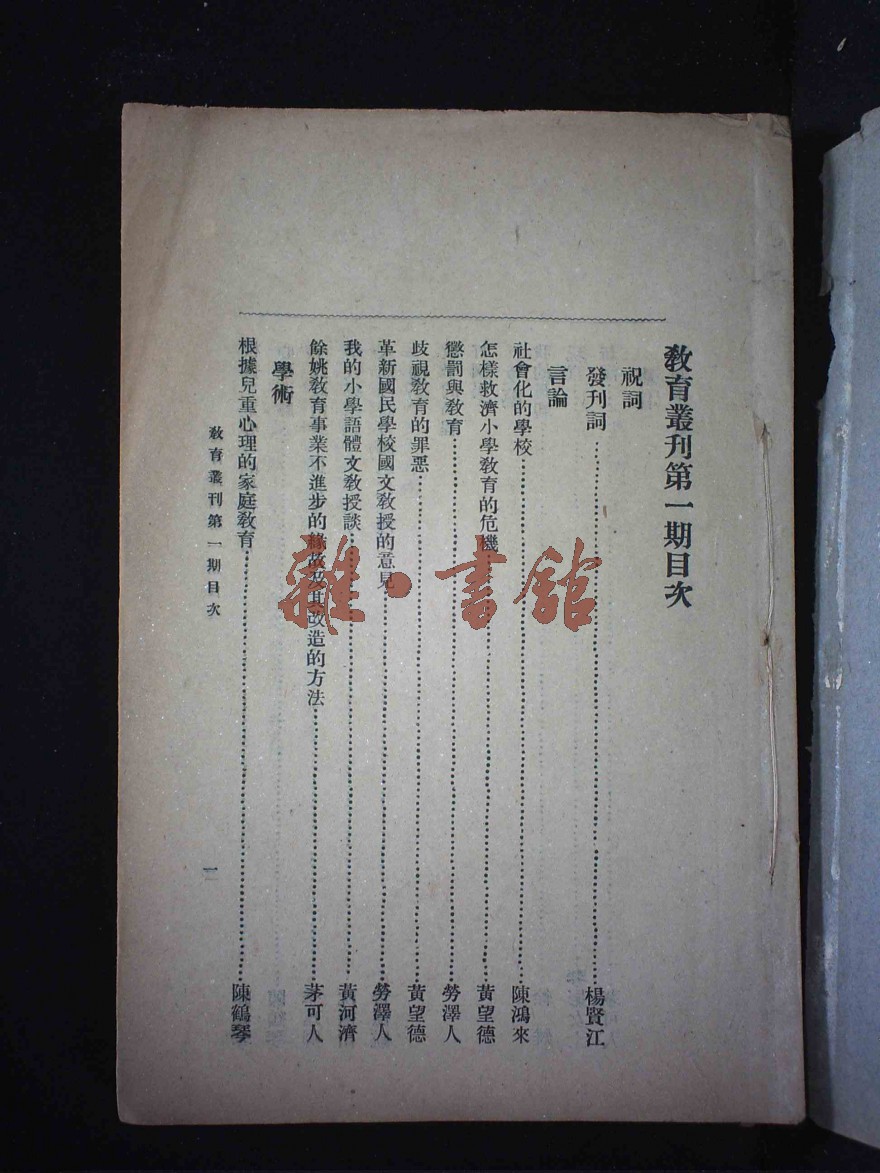 教育叢刊第一期目次
祝詞
發刊詞……楊賢江
言論
社會化的學校……陳鴻來
怎樣救濟小學教育的危機……黃望德
懲罰與教育……勞澤人
歧視教育的罪惡……黃望德
革新國民學校國文教授的意見……勞澤人
我的小學語體文教授談……黃河濟
餘姚教育事業不進步的緣故及其改造的方法……茅可人
學術
根據兒童心理的家庭教育……陳鶴琴
教育叢刊第一期目次
一
雜·書館